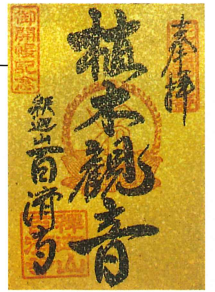 奉拝
植木観音
釈迦山百済寺
御開帳記念